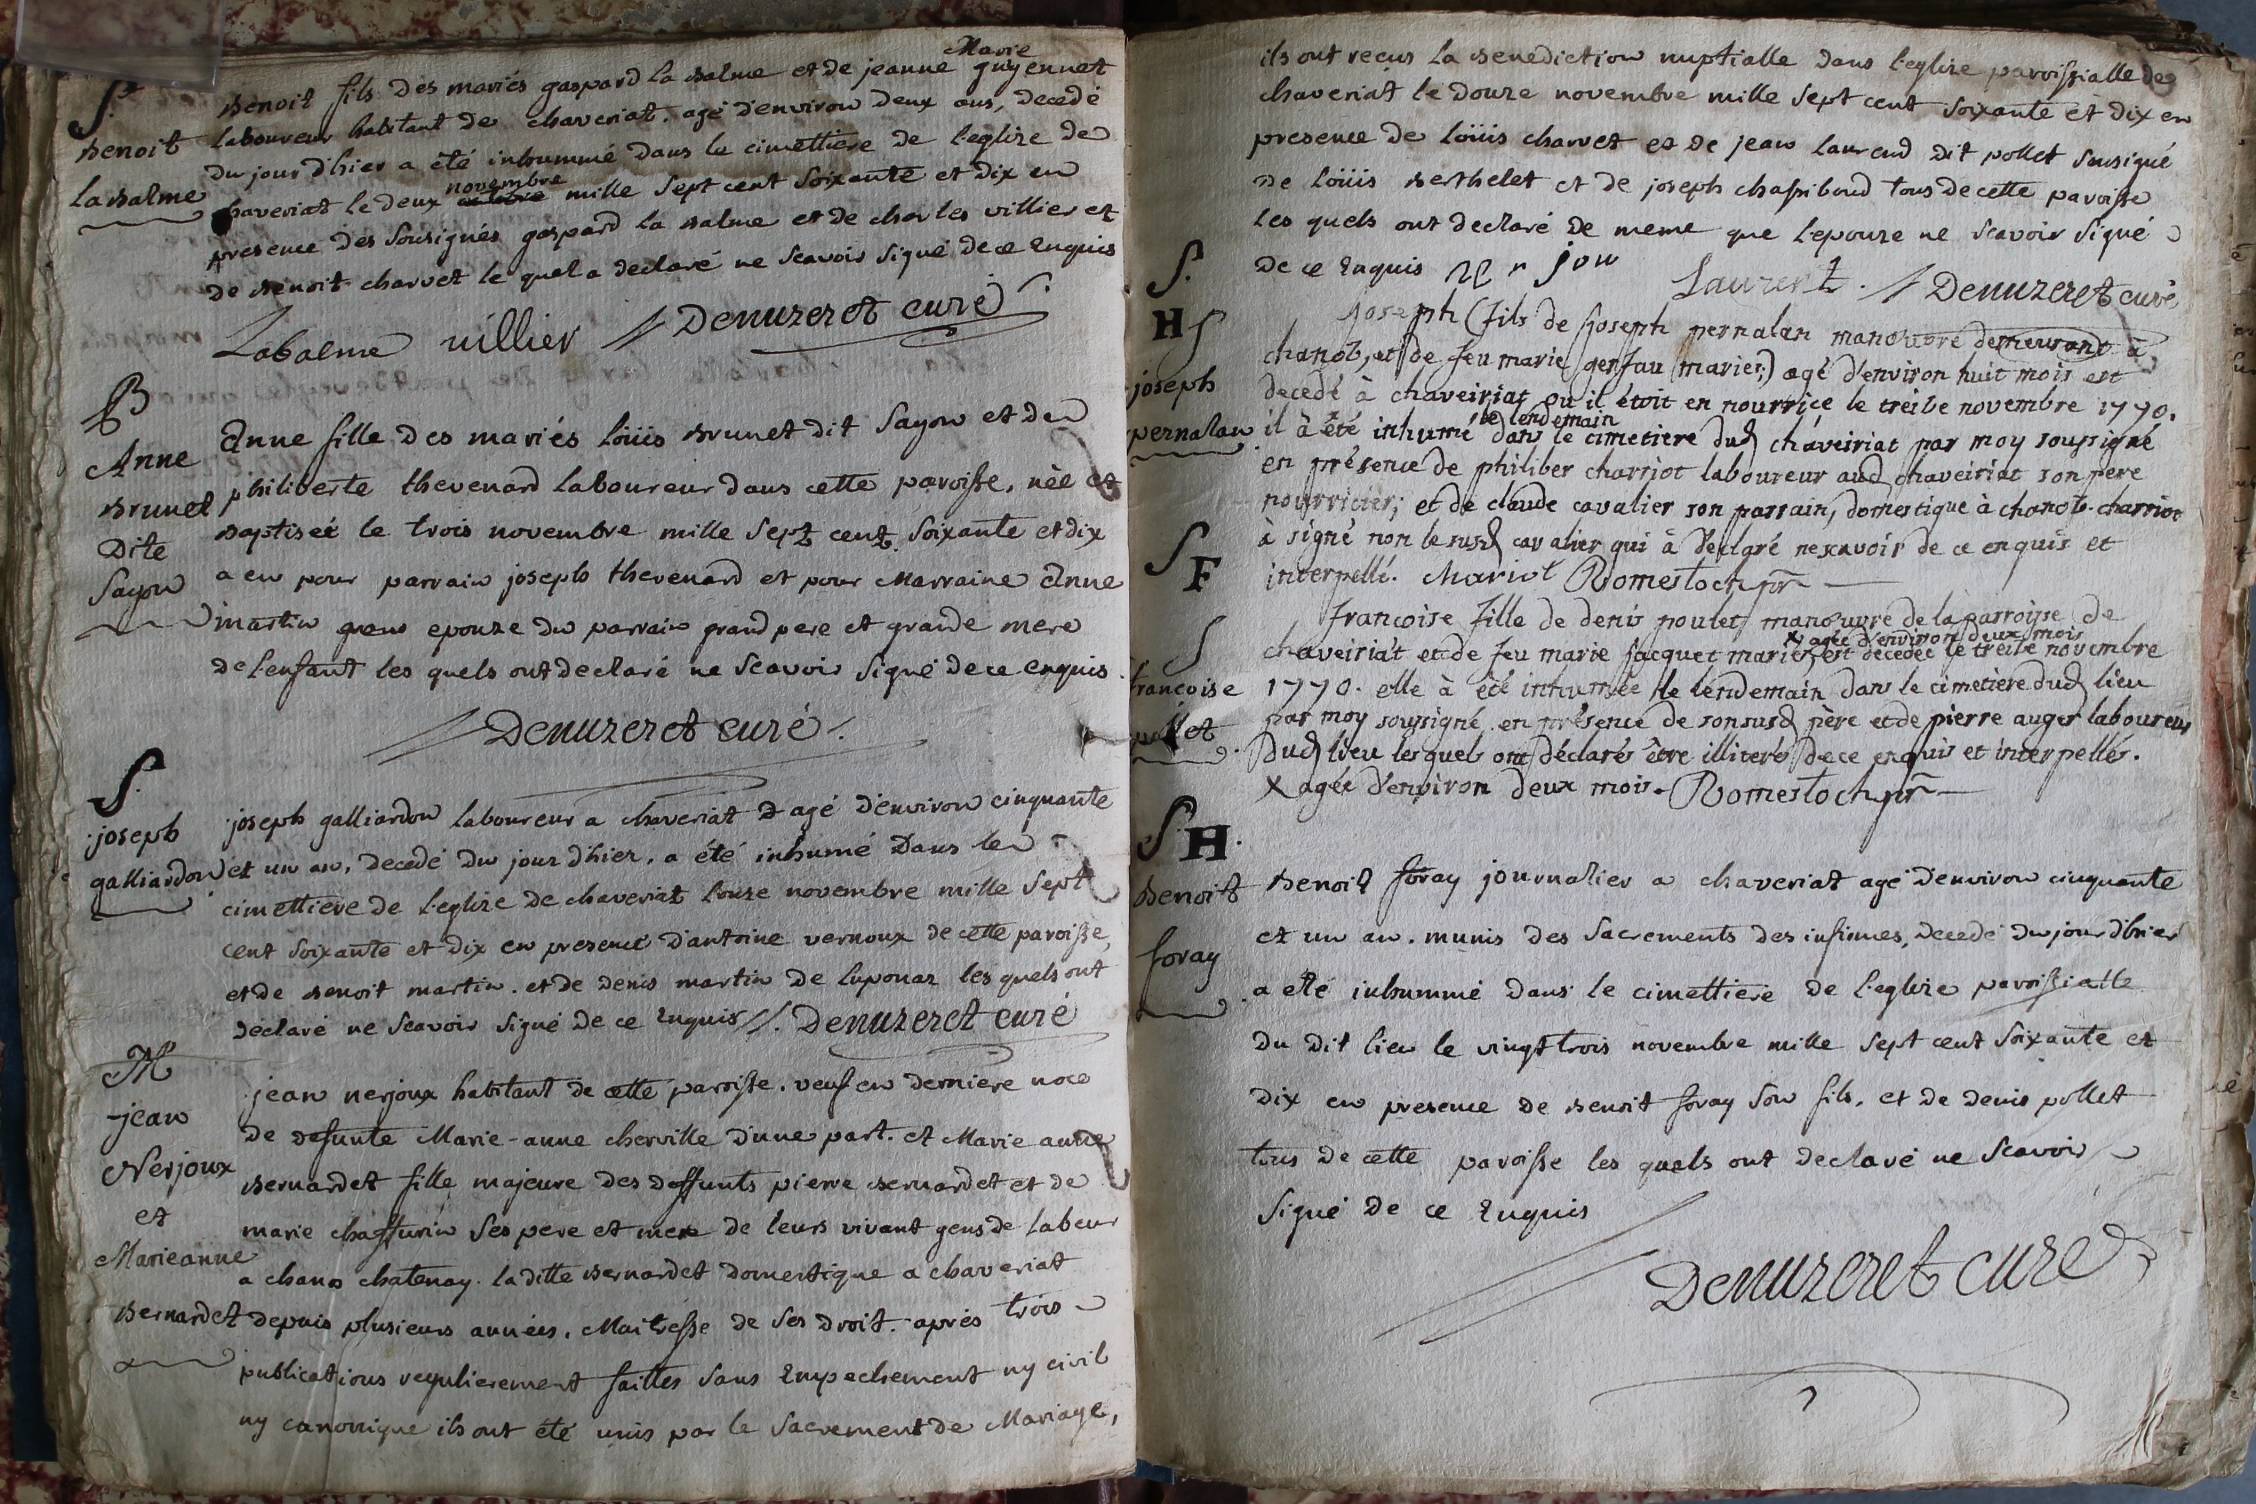 S.
Benoit
La Balme
Marie
Benoit fils des mariés gaspard la Balme et de jeanne guyennet
laboureur habitant de chaveriat. agé d'environ deux ans, decedé
du jour d'hier a été inhummé dans le cimettiere de l'eglize de
chaveriat le deux novembre mille sept cent soixante et dix en
presence des sousignés gaspard la Balme et de charles villier et
de Benoit charvet le quel a declaré ne scavoir signé de ce Enquis
Labalme villier Denuzeret curé
B
Anne
Brunet
Dite
Sayon
Anne fille des mariés loüis Brunet dit Sayon et de
philiberte thevenard laboureur dans cette paroisse, née et
Baptiseé le trois novembre mille sept cent soixante et dix
a eu pour parrain joseph thevenard et pour Marraine Anne
martin epouze du parrain grand pere et grande mere
de l'enfant les quels ont declaré ne scavoir signé de ce enquis.
Denuzeret curé.
S.
joseph
galliardon
joseph galliardon laboureur a chaveriat agé d'environ cinquante
et un an, decedé du jour d'hier, a été inhumé Dans le
cimettiere de l'eglize de chaveriat l'onze novembre mille sept
cent soixante et dix en presence d'antoine vernoux de cette paroisse,
et de Benoit martin. et de denis martin de luponaz les quels ont
declaré ne scavoir signé de ce Enquis. Denuzeret curé
M
jean
Nerjoux
et
Marieanne
Bernardet
jean nerjoux habitant de cette paroisse. veuf en derniere noce
de defunte Marie-anne cherville d'une part. et Marie anne
Bernardet fille majeure des deffunts pierre Bernardet et de
marie chaffurin ses pere et mere de leurs vivant gens de labeur
a chano chatenay. la ditte Bernardet domestique a chaveriat
depuis plusieurs années, Maitresse de ses droit. aprés trois
publications regulierement faittes sans Empechement ny civil
ny canonique ils ont été unis par le sacrement de Mariage,
ils ont recus la Benediction nuptialle dans l'eglize paroissialle de
chaveriat le douze novembre mille sept cent soixante et dix en
presence de loüis charvet et de jean laurend dit pollet sousigné
de loüis Berthelet et de joseph chassiboud tous de cette paroisse
les quels ont declaré de meme que l'epouze ne scavoir signé
de ce Enquis Laurent. Denuzeret curé
S.
H
joseph
pernalan
joseph (fils de joseph pernalan manouvre demeurant à
chanoz, et de feu marie genfau mariés;) agé d'environ huit mois est
decedé à chaveiriat ou il étoit en nourrice le treize novembre 1770.
le lendemain
il à été inhumé dans le cimetiere dud chaveiriat par moy soussigné
en présence de philiber charriot laboureur aud chaveiriat son père
nourricier; et de claude cavalier son parrain, domestique à chanoz. charriot
à signé non le susd cavalier qui à déclaré ne scavoir de ce enquis et
interpellé. chariot Romestoch ptr
S
F
francoise
pollet
francoise fille de denis poulet manouvre de la parroisse de
X agée d'environ deux mois
chaveiriat et de feu marie jacquet mariés, est décédée le treize novembre
1770. elle à été inhumée le lendemain dans le cimetiere dud lieu
par moy soussigné en présence de son susd père et de pierre auger laboureur
dud lieu lesquels ont déclarés être illiterés de ce enquis et interpellés.
X agée d'environ deux mois. Romestoch ptr
S H.
Benoit
foray
Benoit foray journalier a chaveriat agé d'environ cinquante
et un an. munis des sacrements des infirmes, decedé du jour d'hier
a été inhummé dans le cimettiere de l'eglize paroissialle
du dit lieu le vingt trois novembre mille sept cent soixante et
dix en presence de Benoit foray son fils, et de denis pollet
tous de cette paroisse les quels ont declaré ne scavoir
signé de ce Enquis
Denuzeret curé